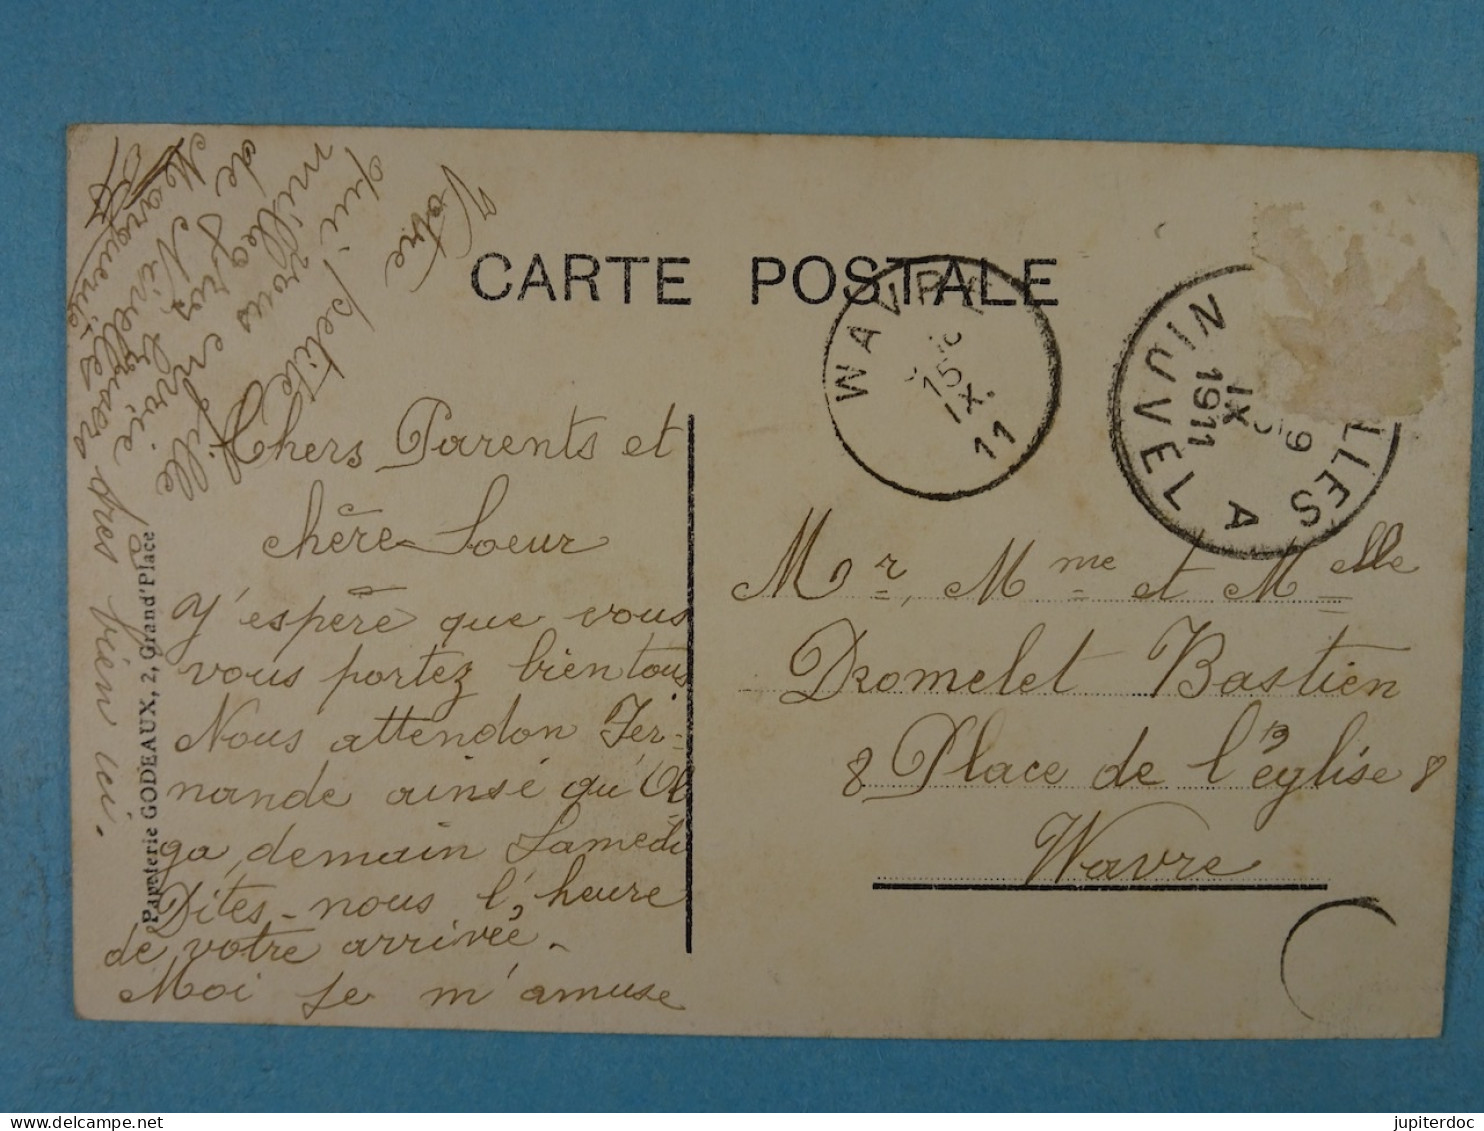 CARTE POSTALE
WAVRE
15
IX.
11
NIJVEL
1911
IX
9
LLES A
Chers Parents et
chère Soeur
J'espère que vous
vous portez bien tous
Nous attendon Fer-
nande ainsi qu'Ol
ga, demain Samedi
Dites-nous l'heure
de votre arrivée.
Moi je m'amuse
très bien ici.
Votre
petite
qui vous en
mille
de gros
de Nivelles
Marguerite
Papeterie GODEAUX, 2, Grand'Place
Mr, Mme et Melle
Dromelet Bastien
8 Place de l'église 8
Wavre
delcampe.net
jupiterdoc